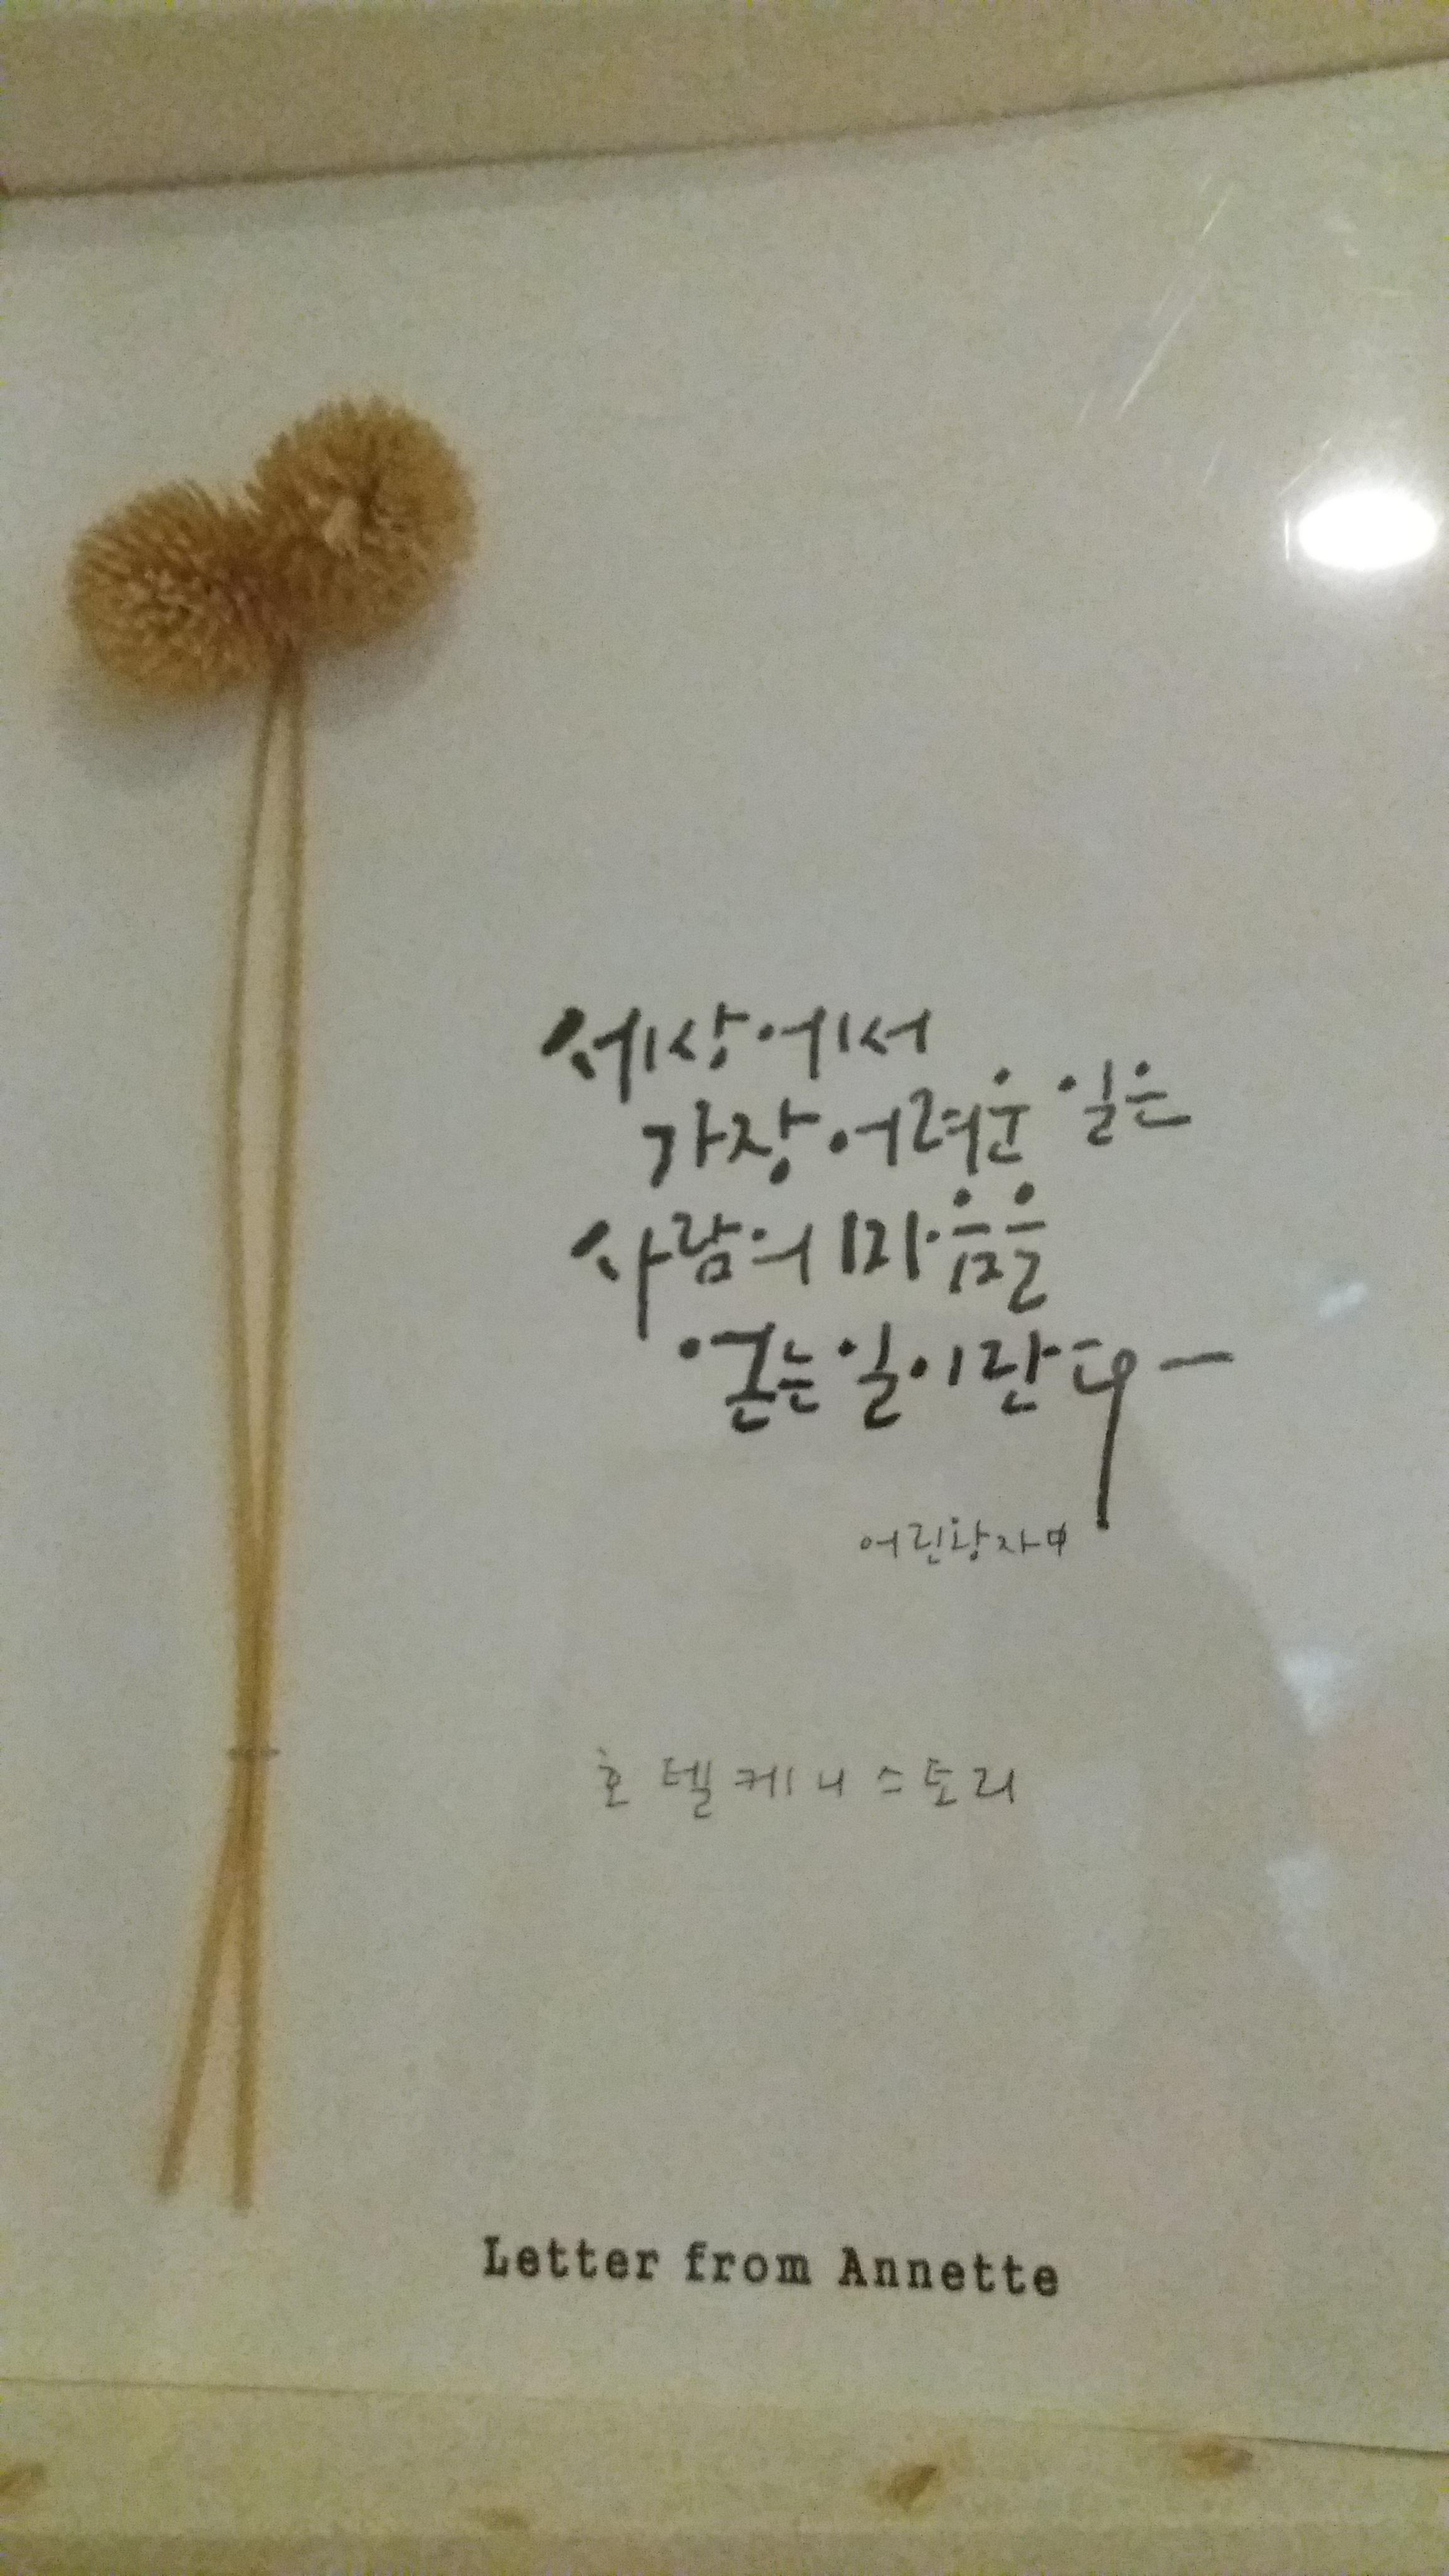 세상에서
가장 어려운 일은
사람의 마음을
얻는 일이란다
어린왕자中
호텔케니스토리
Letter from Annette